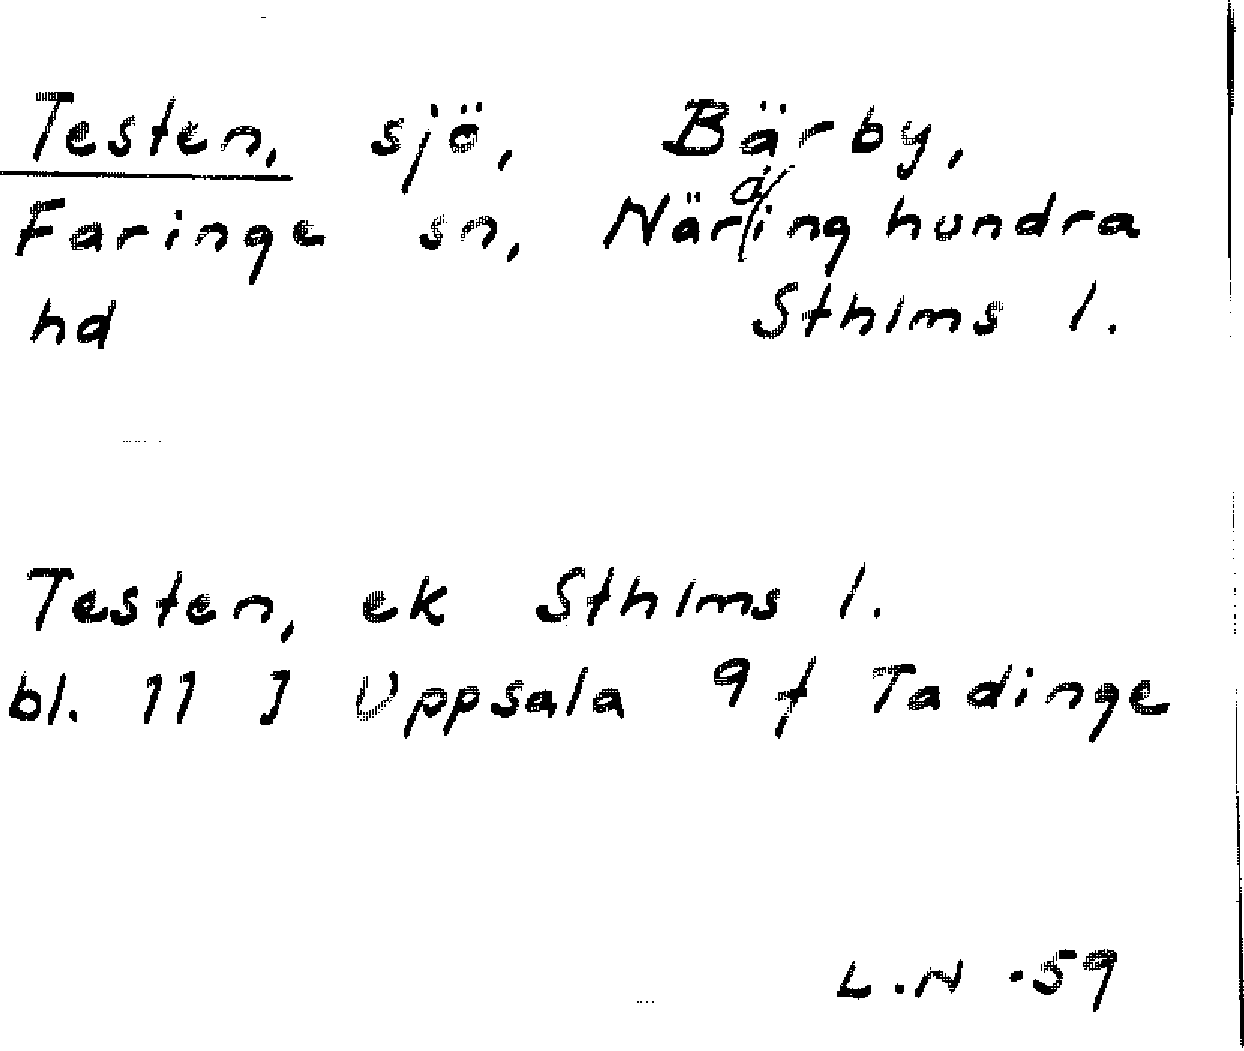 Testen, sjö, Bärby,
Faringe sn, Närdinghundra
hd Sthlms l.
Testen, ek Sthlms l.
bl. 11 I Uppsala 9 f Tadinge
L.N -59